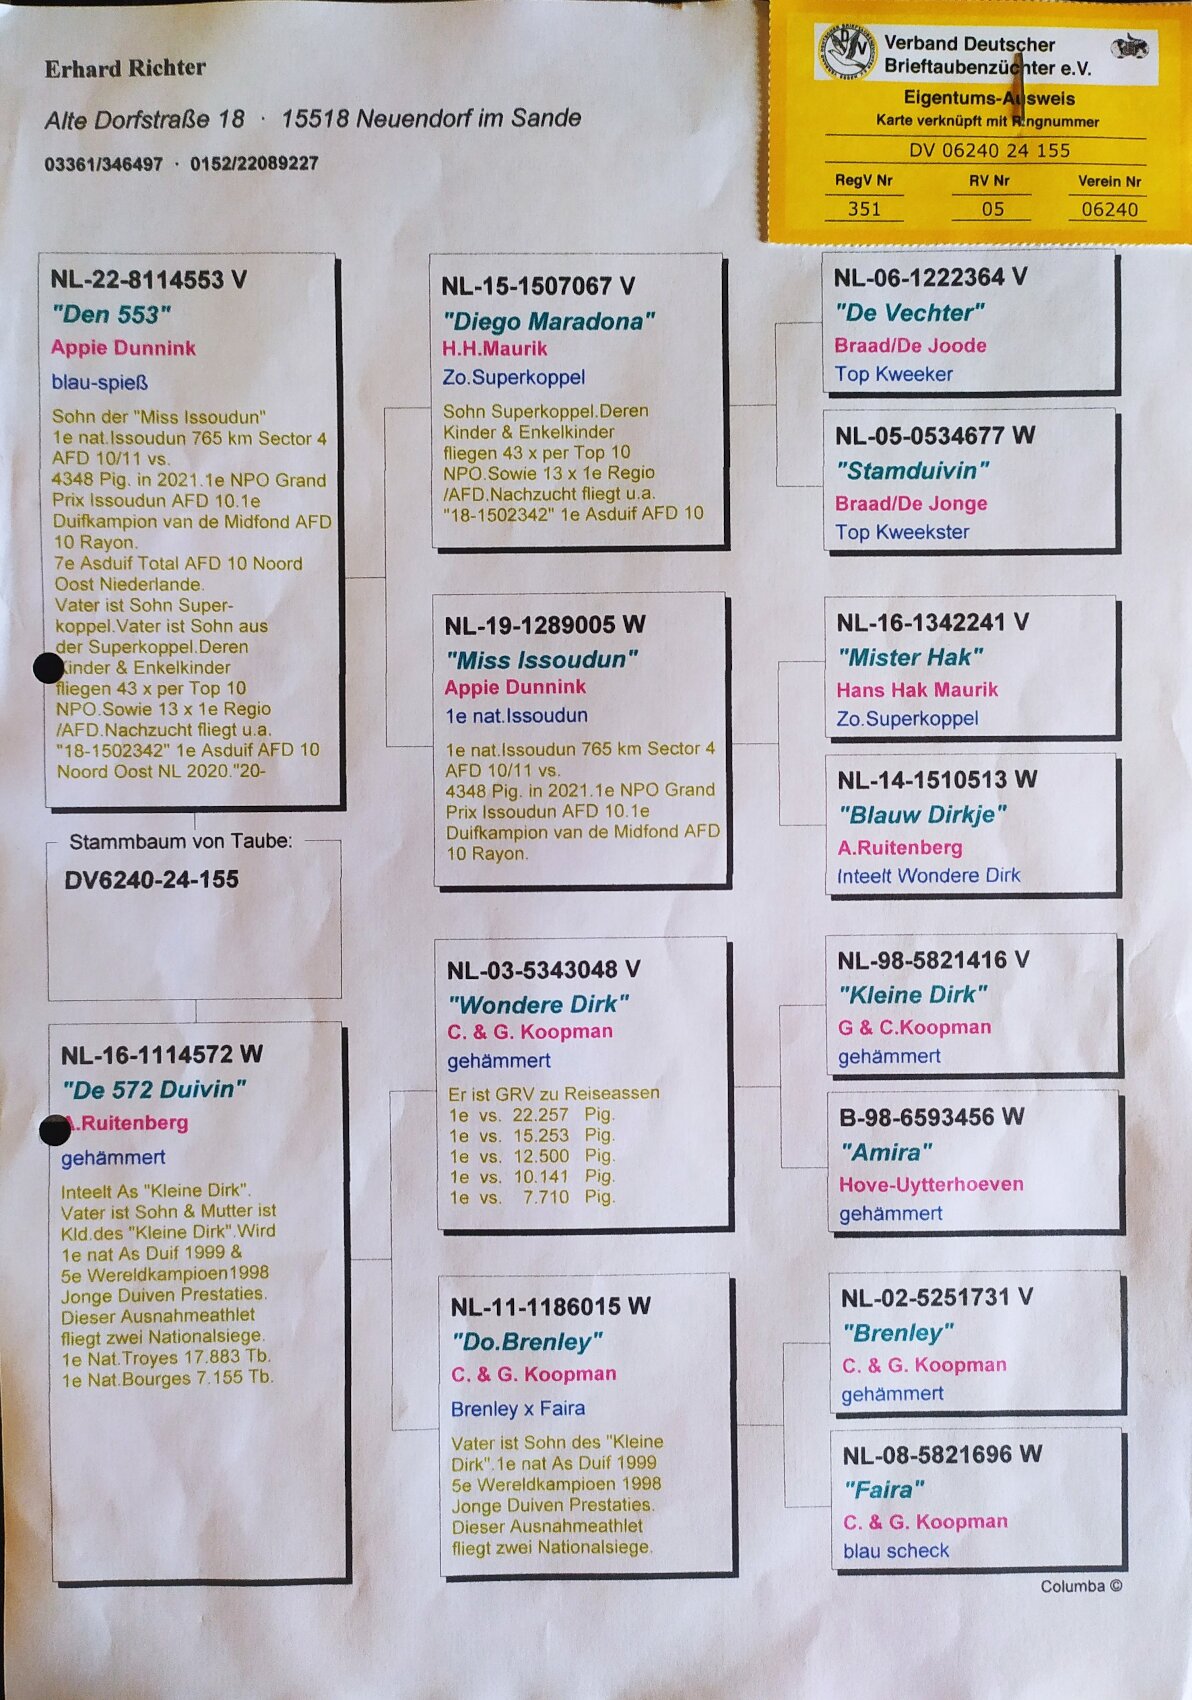 Erhard Richter
Alte Dorfstraße 18 · 15518 Neuendorf im Sande
03361/346497 · 0152/22089227
Verband Deutscher
Brieftaubenzüchter e.V.
Eigentums-Ausweis
Karte verknüpft mit Ringnummer
DV 06240 24 155
RegV Nr RV Nr Verein Nr
351 05 06240
NL-22-8114553 V
"Den 553"
Appie Dunnink
blau-spieß
Sohn der "Miss Issoudun"
1e nat.Issoudun 765 km Sector 4
AFD 10/11 vs.
4348 Pig. in 2021.1e NPO Grand
Prix Issoudun AFD 10.1e
Duifkampion van de Midfond AFD
10 Rayon.
7e Asduif Total AFD 10 Noord
Oost Niederlande.
Vater ist Sohn Super-
koppel.Vater ist Sohn aus
der Superkoppel.Deren
Kinder & Enkelkinder
fliegen 43 x per Top 10
NPO.Sowie 13 x 1e Regio
/AFD.Nachzucht fliegt u.a.
"18-1502342" 1e Asduif AFD 10
Noord Oost NL 2020."20-
Stammbaum von Taube:
DV6240-24-155
NL-16-1114572 W
"De 572 Duivin"
A.Ruitenberg
gehämmert
Inteelt As "Kleine Dirk".
Vater ist Sohn & Mutter ist
Kld.des "Kleine Dirk".Wird
1e nat As Duif 1999 &
5e Wereldkampioen1998
Jonge Duiven Prestaties.
Dieser Ausnahmeathlet
fliegt zwei Nationalsiege.
1e Nat.Troyes 17.883 Tb.
1e Nat.Bourges 7.155 Tb.
NL-15-1507067 V
"Diego Maradona"
H.H.Maurik
Zo.Superkoppel
Sohn Superkoppel.Deren
Kinder & Enkelkinder
fliegen 43 x per Top 10
NPO.Sowie 13 x 1e Regio
/AFD.Nachzucht fliegt u.a.
"18-1502342" 1e Asduif AFD 10
NL-19-1289005 W
"Miss Issoudun"
Appie Dunnink
1e nat.Issoudun
1e nat.Issoudun 765 km Sector 4
AFD 10/11 vs.
4348 Pig. in 2021.1e NPO Grand
Prix Issoudun AFD 10.1e
Duifkampion van de Midfond AFD
10 Rayon.
NL-03-5343048 V
"Wondere Dirk"
C. & G. Koopman
gehämmert
Er ist GRV zu Reiseassen
1e vs. 22.257 Pig.
1e vs. 15.253 Pig.
1e vs. 12.500 Pig.
1e vs. 10.141 Pig.
1e vs. 7.710 Pig.
NL-11-1186015 W
"Do.Brenley"
C. & G. Koopman
Brenley x Faira
Vater ist Sohn des "Kleine
Dirk".1e nat As Duif 1999
5e Wereldkampioen 1998
Jonge Duiven Prestaties.
Dieser Ausnahmeathlet
fliegt zwei Nationalsiege.
NL-06-1222364 V
"De Vechter"
Braad/De Joode
Top Kweeker
NL-05-0534677 W
"Stamduivin"
Braad/De Jonge
Top Kweekster
NL-16-1342241 V
"Mister Hak"
Hans Hak Maurik
Zo.Superkoppel
NL-14-1510513 W
"Blauw Dirkje"
A.Ruitenberg
Inteelt Wondere Dirk
NL-98-5821416 V
"Kleine Dirk"
G & C.Koopman
gehämmert
B-98-6593456 W
"Amira"
Hove-Uytterhoeven
gehämmert
NL-02-5251731 V
"Brenley"
C. & G. Koopman
gehämmert
NL-08-5821696 W
"Faira"
C. & G. Koopman
blau scheck
Columba ©